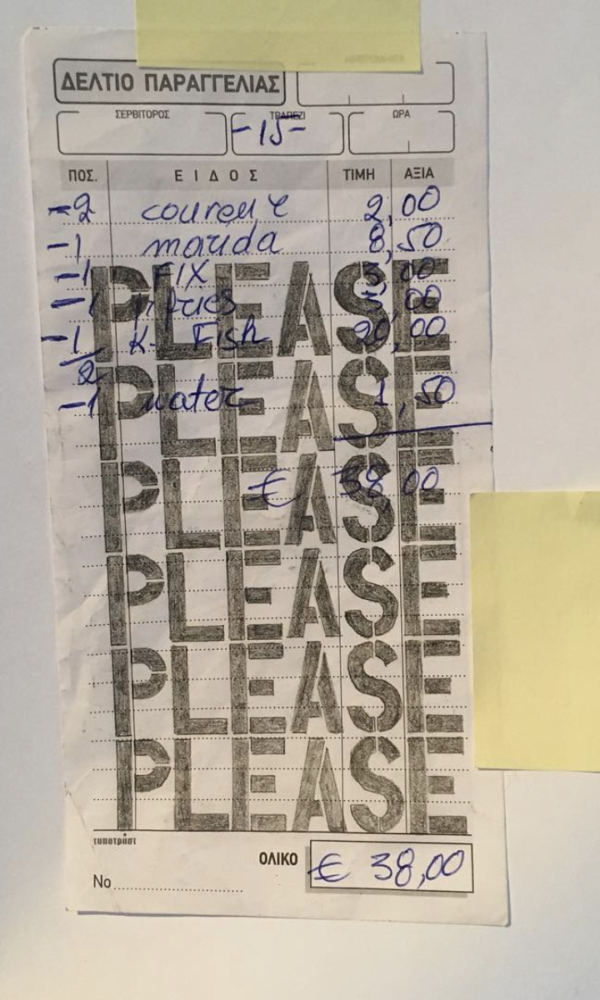 ΔΕΛΤΙΟ ΠΑΡΑΓΓΕΛΙΑΣ
ΣΕΡΒΙΤΟΡΟΣ ΤΡΑΠΕΖΙ ΩΡΑ
-15-
ΠΟΣ. ΕΙΔΟΣ ΤΙΜΗ ΑΞΙΑ
-2 2,00
-1 marida 8,50
-1 FIX 3,00
-1 ,00
-1 K Fish 20,00
2
-1 water 1,50
€ 38,00
PLEASE
PLEASE
PLEASE
PLEASE
PLEASE
PLEASE
ΟΛΙΚΟ € 38,00
No